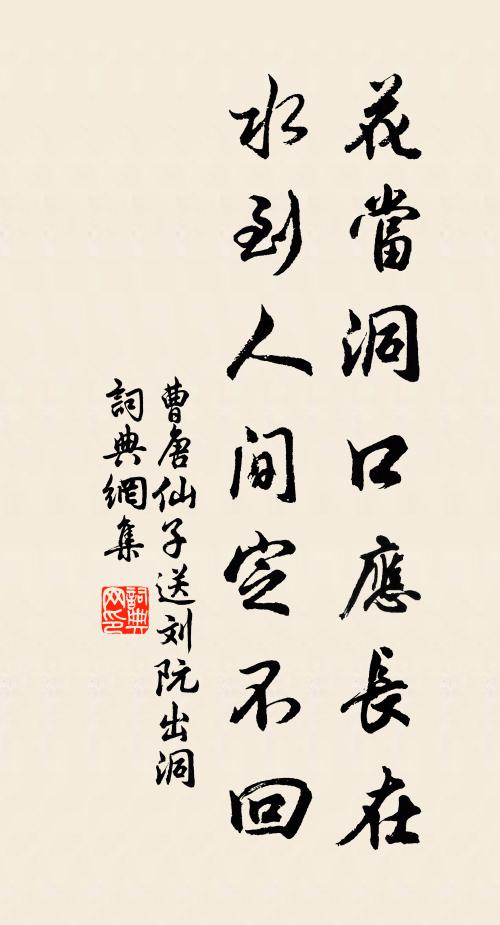 花當洞口應長在
水到人間定不回
曹唐仙子送刘阮出洞
詞典網集
詞典网印